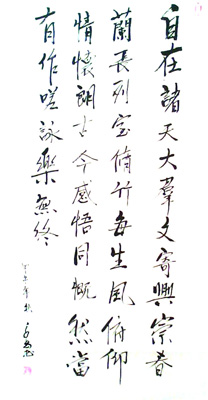 自在諸天大羣文寄興崇春
蘭長列室脩竹每生風俯仰
情懷朗古今感悟同慨然當
有作嗟詠樂無終